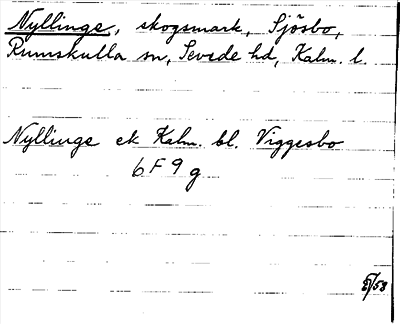 Nyllinge, skogsmark, Sjösbo,
Rumskulla sn, Sevede hd, Kalm. l.
Nyllinge ek Kalm. bl. Viggesbo
6 F 9 g
/53